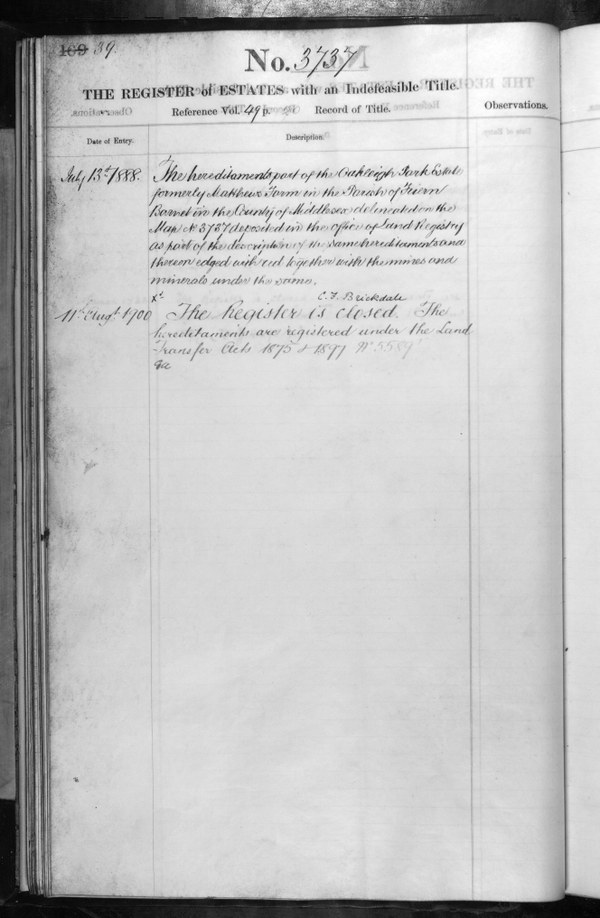 109 39.
No. 3737
THE REGISTER of ESTATES with an Indefeasible Title.
Reference Vol. 49 p. Record of Title.
Observations.
Date of Entry.
Description.
July 13th 1888. The hereditaments part of the Oakleigh Park Estate
formerly Matthews Farm in the Parish of Friern
Barnet in the County of Middlesex delineated on the
Map No 3737 deposited in the office of Land Registry
as part of the description of the same hereditaments and
thereon edged with red together with the mines and
minerals under the same.
C. F. Brickdale
11th Augt 1900 The Register is closed. The
hereditaments are registered under the Land
Transfer Acts 1875 & 1897 No 5589